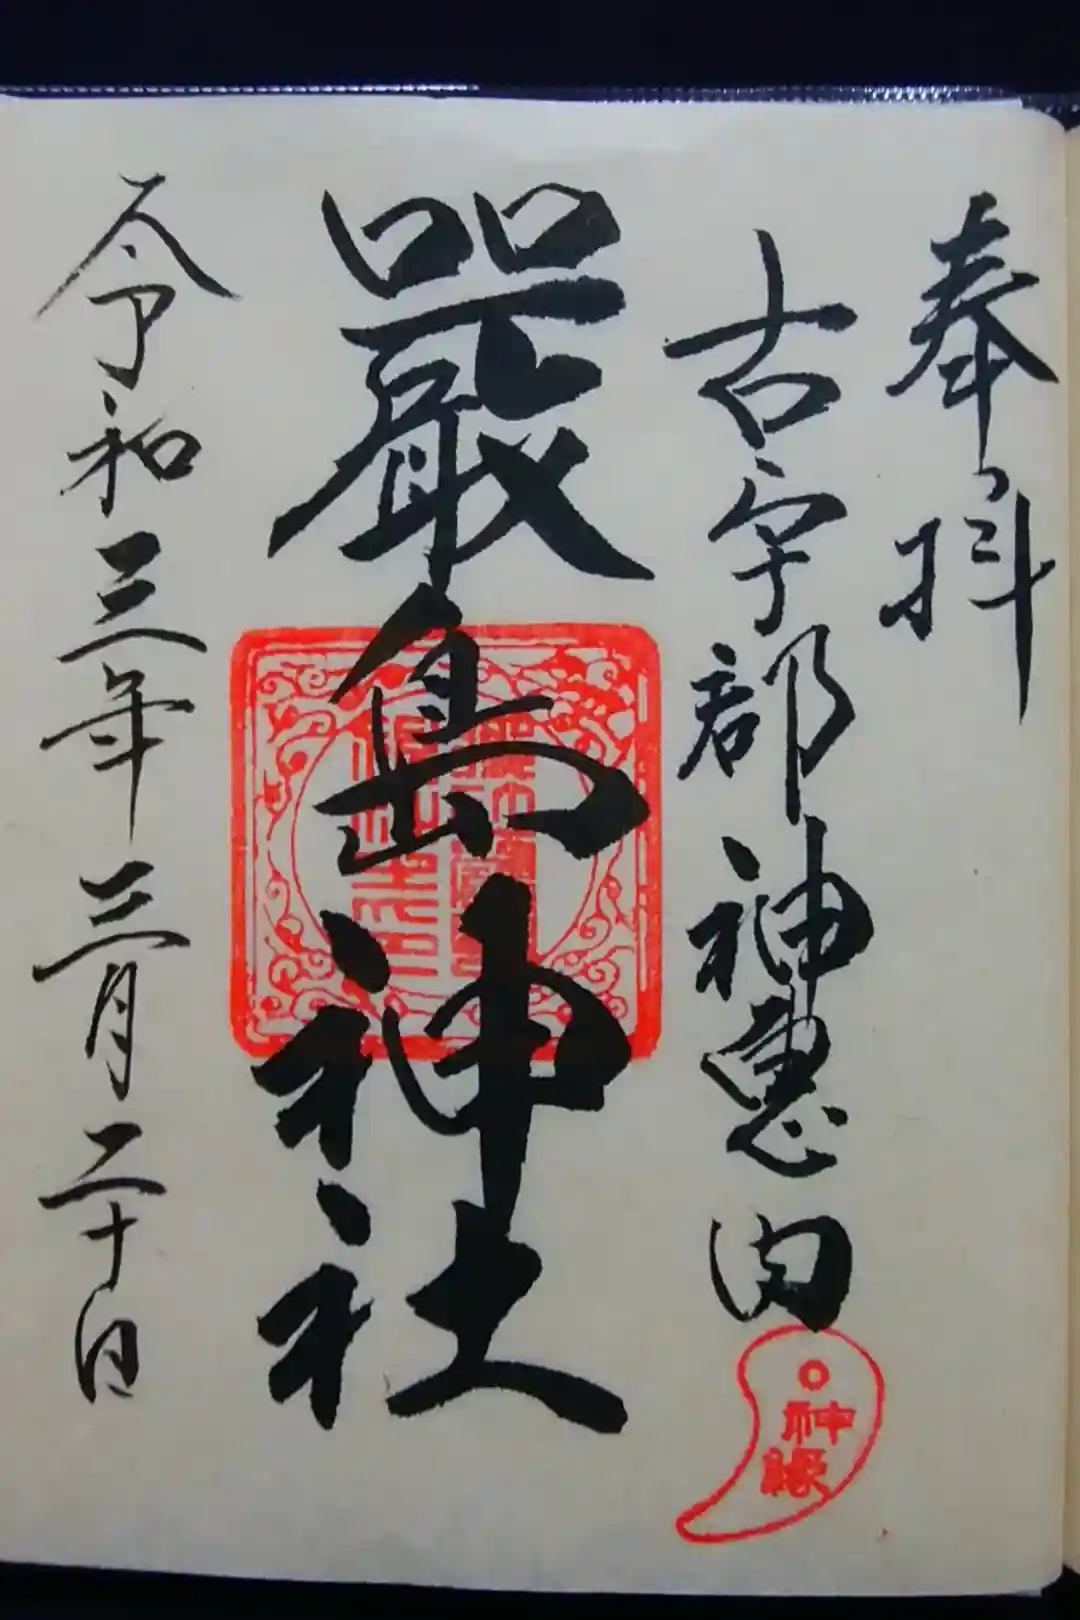 奉拝
古宇部神恵内
嚴島神社
令和三年三月二十日
神縁